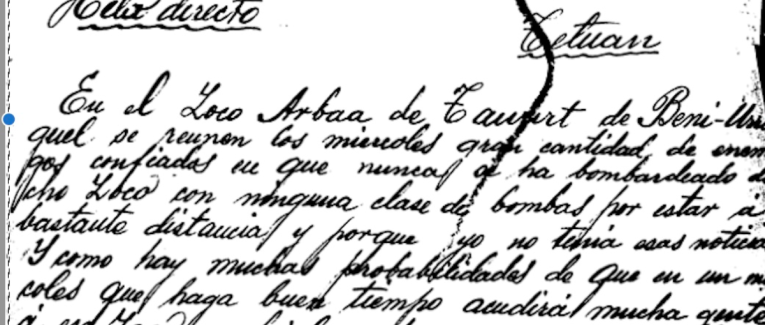 Hélix directo
Tetuan
En el Zoco Arbaa de Taurirt de Beni-Urri
quel se reunen los miercoles gran cantidad de enem
gos confiados en que nunca se ha bombardeado di
cho Zoco con ninguna clase de bombas por estar á
bastante distancia y porque yo no tenia esas noticia
Y como hay muchas probabilidades de que en un mi
coles que haga buen tiempo acudirá mucha gente